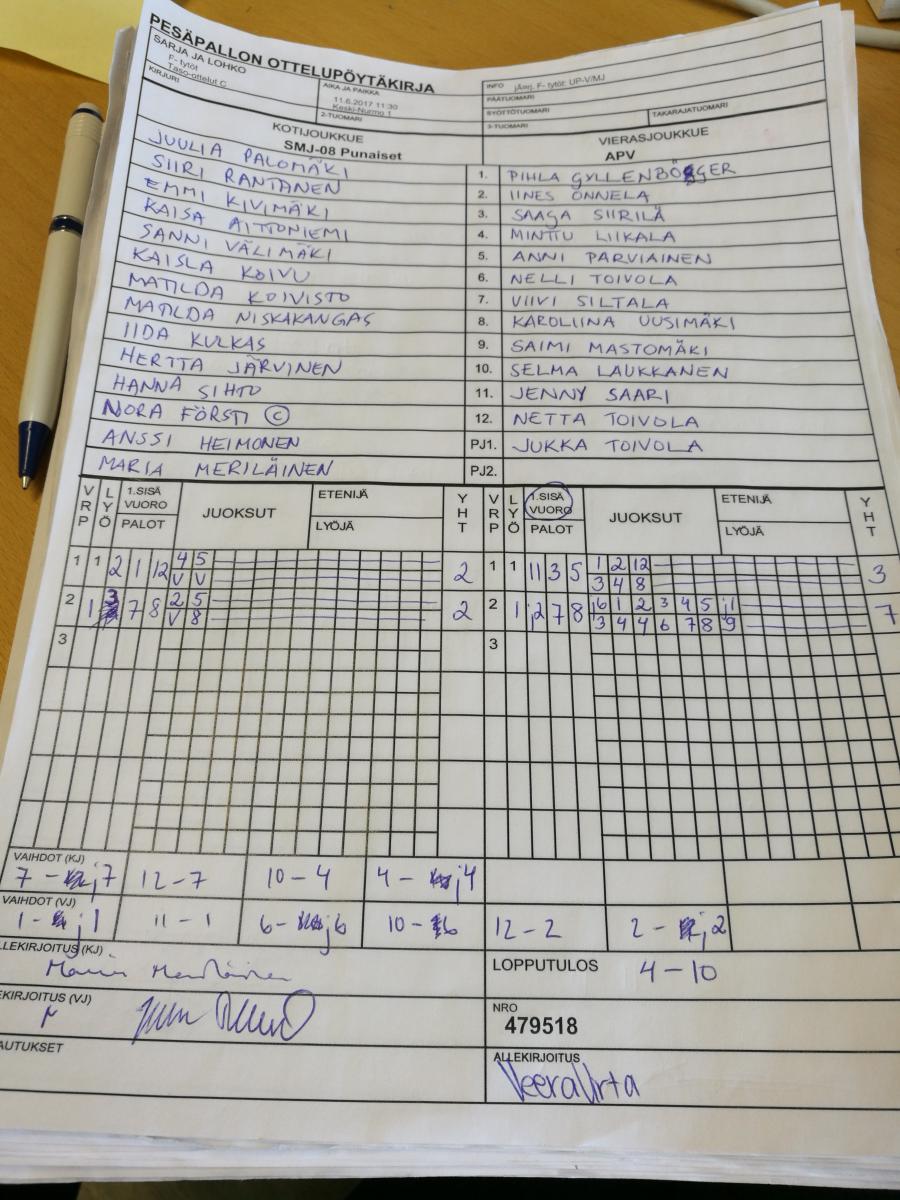 PESÄPALLON OTTELUPÖYTÄKIRJA
SARJA JA LOHKO
F- tytöt
Taso-ottelut C
AIKA JA PAIKKA
11.6.2017 11:30
Keski-Nurmo 1
INFO jÄrj. F- tytöt: UP-V/MJ
PÄÄTUOMARI
KIRJURI
2-TUOMARI
SYÖTTÖTUOMARI
TAKARAJATUOMARI
3-TUOMARI
KOTIJOUKKUE
SMJ-08 Punaiset
VIERASJOUKKUE
APV
JUULIA PALOMÄKI 1. PIHLA GYLLENBÖGER
SIIRI RANTANEN 2. IINES ONNELA
EMMI KIVIMÄKI 3. SAAGA SIIRILÄ
KAISA AITTONIEMI 4. MINTTU LIIKALA
SANNI VÄLIMÄKI 5. ANNI PARVIAINEN
KAISLA KOIVU 6. NELLI TOIVOLA
MATILDA KOIVISTO 7. VIIVI SILTALA
MATILDA NISKAKANGAS 8. KAROLIINA UUSIMÄKI
IIDA KULKAS 9. SAIMI MASTOMÄKI
HERTTA JÄRVINEN 10. SELMA LAUKKANEN
HANNA SIHTO 11. JENNY SAARI
NORA FÖRSTI © 12. NETTA TOIVOLA
ANSSI HEIMONEN PJ1. JUKKA TOIVOLA
MARIA MERILÄINEN PJ2.
VRP LYÖ 1.SISÄ VUORO PALOT JUOKSUT ETENIJÄ LYÖJÄ YHT VRP LYÖ 1.SISÄ VUORO PALOT JUOKSUT ETENIJÄ LYÖJÄ YHT
1 1 2 1 12 4 5 2 1 1 11 3 5 1 2 12 3
V V 3 4 8
2 1 3 7 8 2 5 2 2 1 j2 7 8 j6 1 2 3 4 5 j1 7
V 8 3 4 4 6 7 8 9
3 3
VAIHDOT (KJ)
7 - j7 12-7 10-4 4 - j4
VAIHDOT (VJ)
1 - j1 11-1 6 - j6 10 - 6 12-2 2 - j2
LLEKIRJOITUS (KJ)
LOPPUTULOS 4-10
EKIRJOITUS (VJ)
NRO
479518
AUTUKSET
ALLEKIRJOITUS
Veera Virta